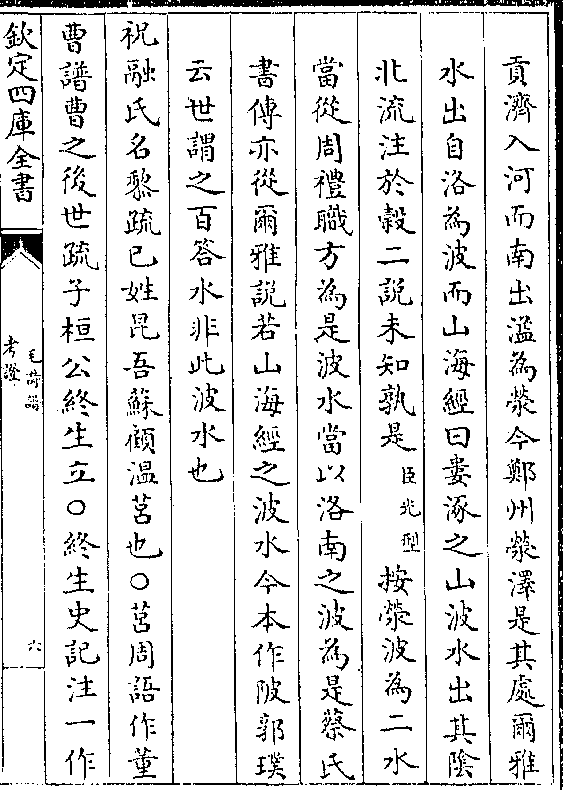 貢濟入河而南出溢為滎今鄭州滎澤是其處爾雅
水出自洛為波而山海經曰婁涿之山波水出其陰
北流注於穀二說未知孰是臣兆型按滎波為二水
當從周禮職方為是波水當以洛南之波為是蔡氏
書傳亦從爾雅說若山海經之波水今本作陂郭璞
云世謂之百答水非此波水也
祝融氏名黎疏己姓昆吾蘇顧溫莒也○莒周語作董
曹譜曹之後世疏子桓公終生立○終生史記注一作
欽定四庫全書
毛詩譜
考證
六